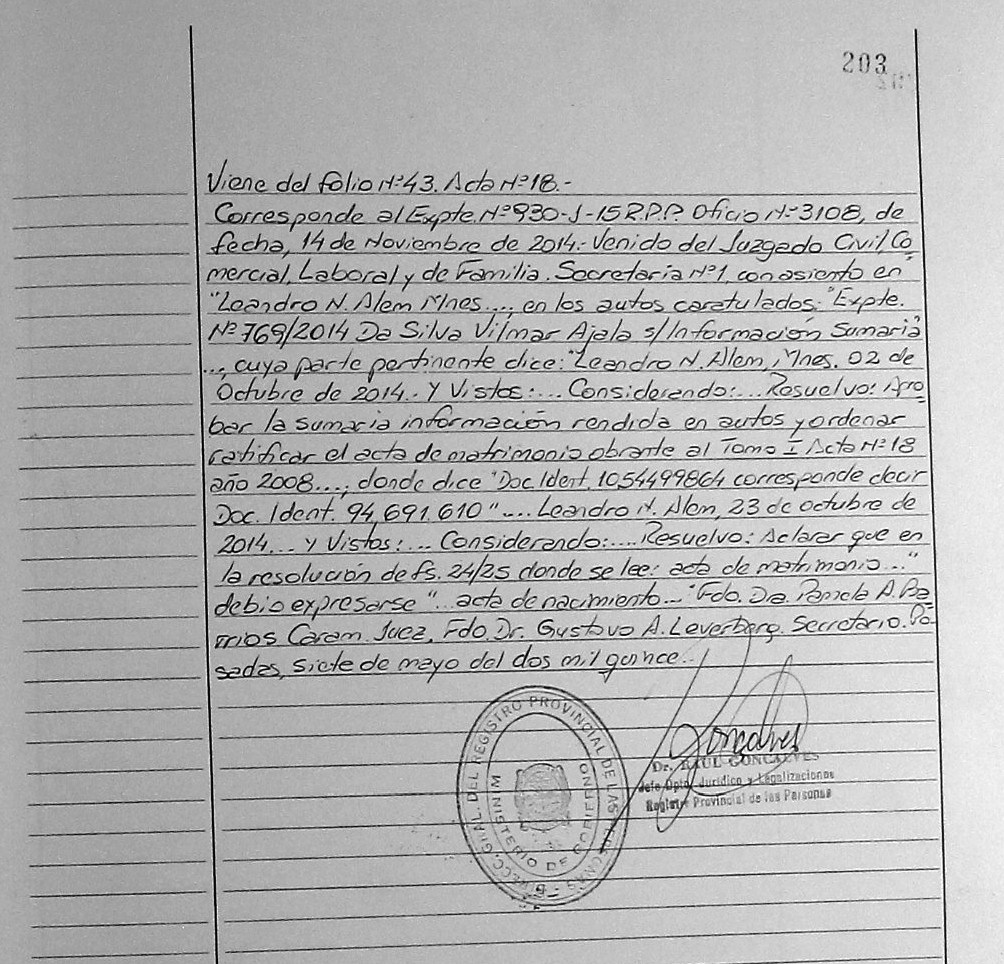 203
Viene del folio Nº43. Acta Nº18.-
Corresponde al Expte. Nº930-J-15 R.P.P. Oficio Nº3108, de
fecha, 14 de Noviembre de 2014.- Venido del Juzgado Civil, Co
mercial, Laboral y de Familia. Secretaria Nº1, con asiento en
"Leandro N. Alem Mnes..., en los autos caratulados: "Expte.
Nº 769/2014 Da Silva Vilmar Ajala s/Información Sumaria"
..., cuya parte pertinente dice: "Leandro N. Alem, Mnes. 02 de
Octubre de 2014.. Y Vistos:... Considerando:... Resuelvo: Apro
bar la sumaria información rendida en autos y ordenar
ratificar el acta de matrimonio obrante al Tomo I Acta Nº18
año 2008..., donde dice "Doc. Ident. 1054499864 corresponde decir
Doc. Ident. 94,691.610"... Leandro N. Alem, 23 de octubre de
2014... y Vistos:... Considerando:.... Resuelvo: Aclarar que en
la resolución de fs. 24/25 donde se lee: acta de matrimonio..."
debio expresarse "...acta de nacimiento..." Fdo. Dra. Pamela A. Ba
rrios Caram. Juez. Fdo. Dr. Gustavo A. Leverberg. Secretario. Po
sadas, siete de mayo del dos mil quince..
DIRECC. GRAL. DEL REGISTRO PROVINCIAL DE LAS
MINISTERIO DE GOBIERNO
Goncalves
Dr. RAUL GONCALVES
Jefe Dpto. Juridico y Legalizaciones
Registro Provincial de las Personas